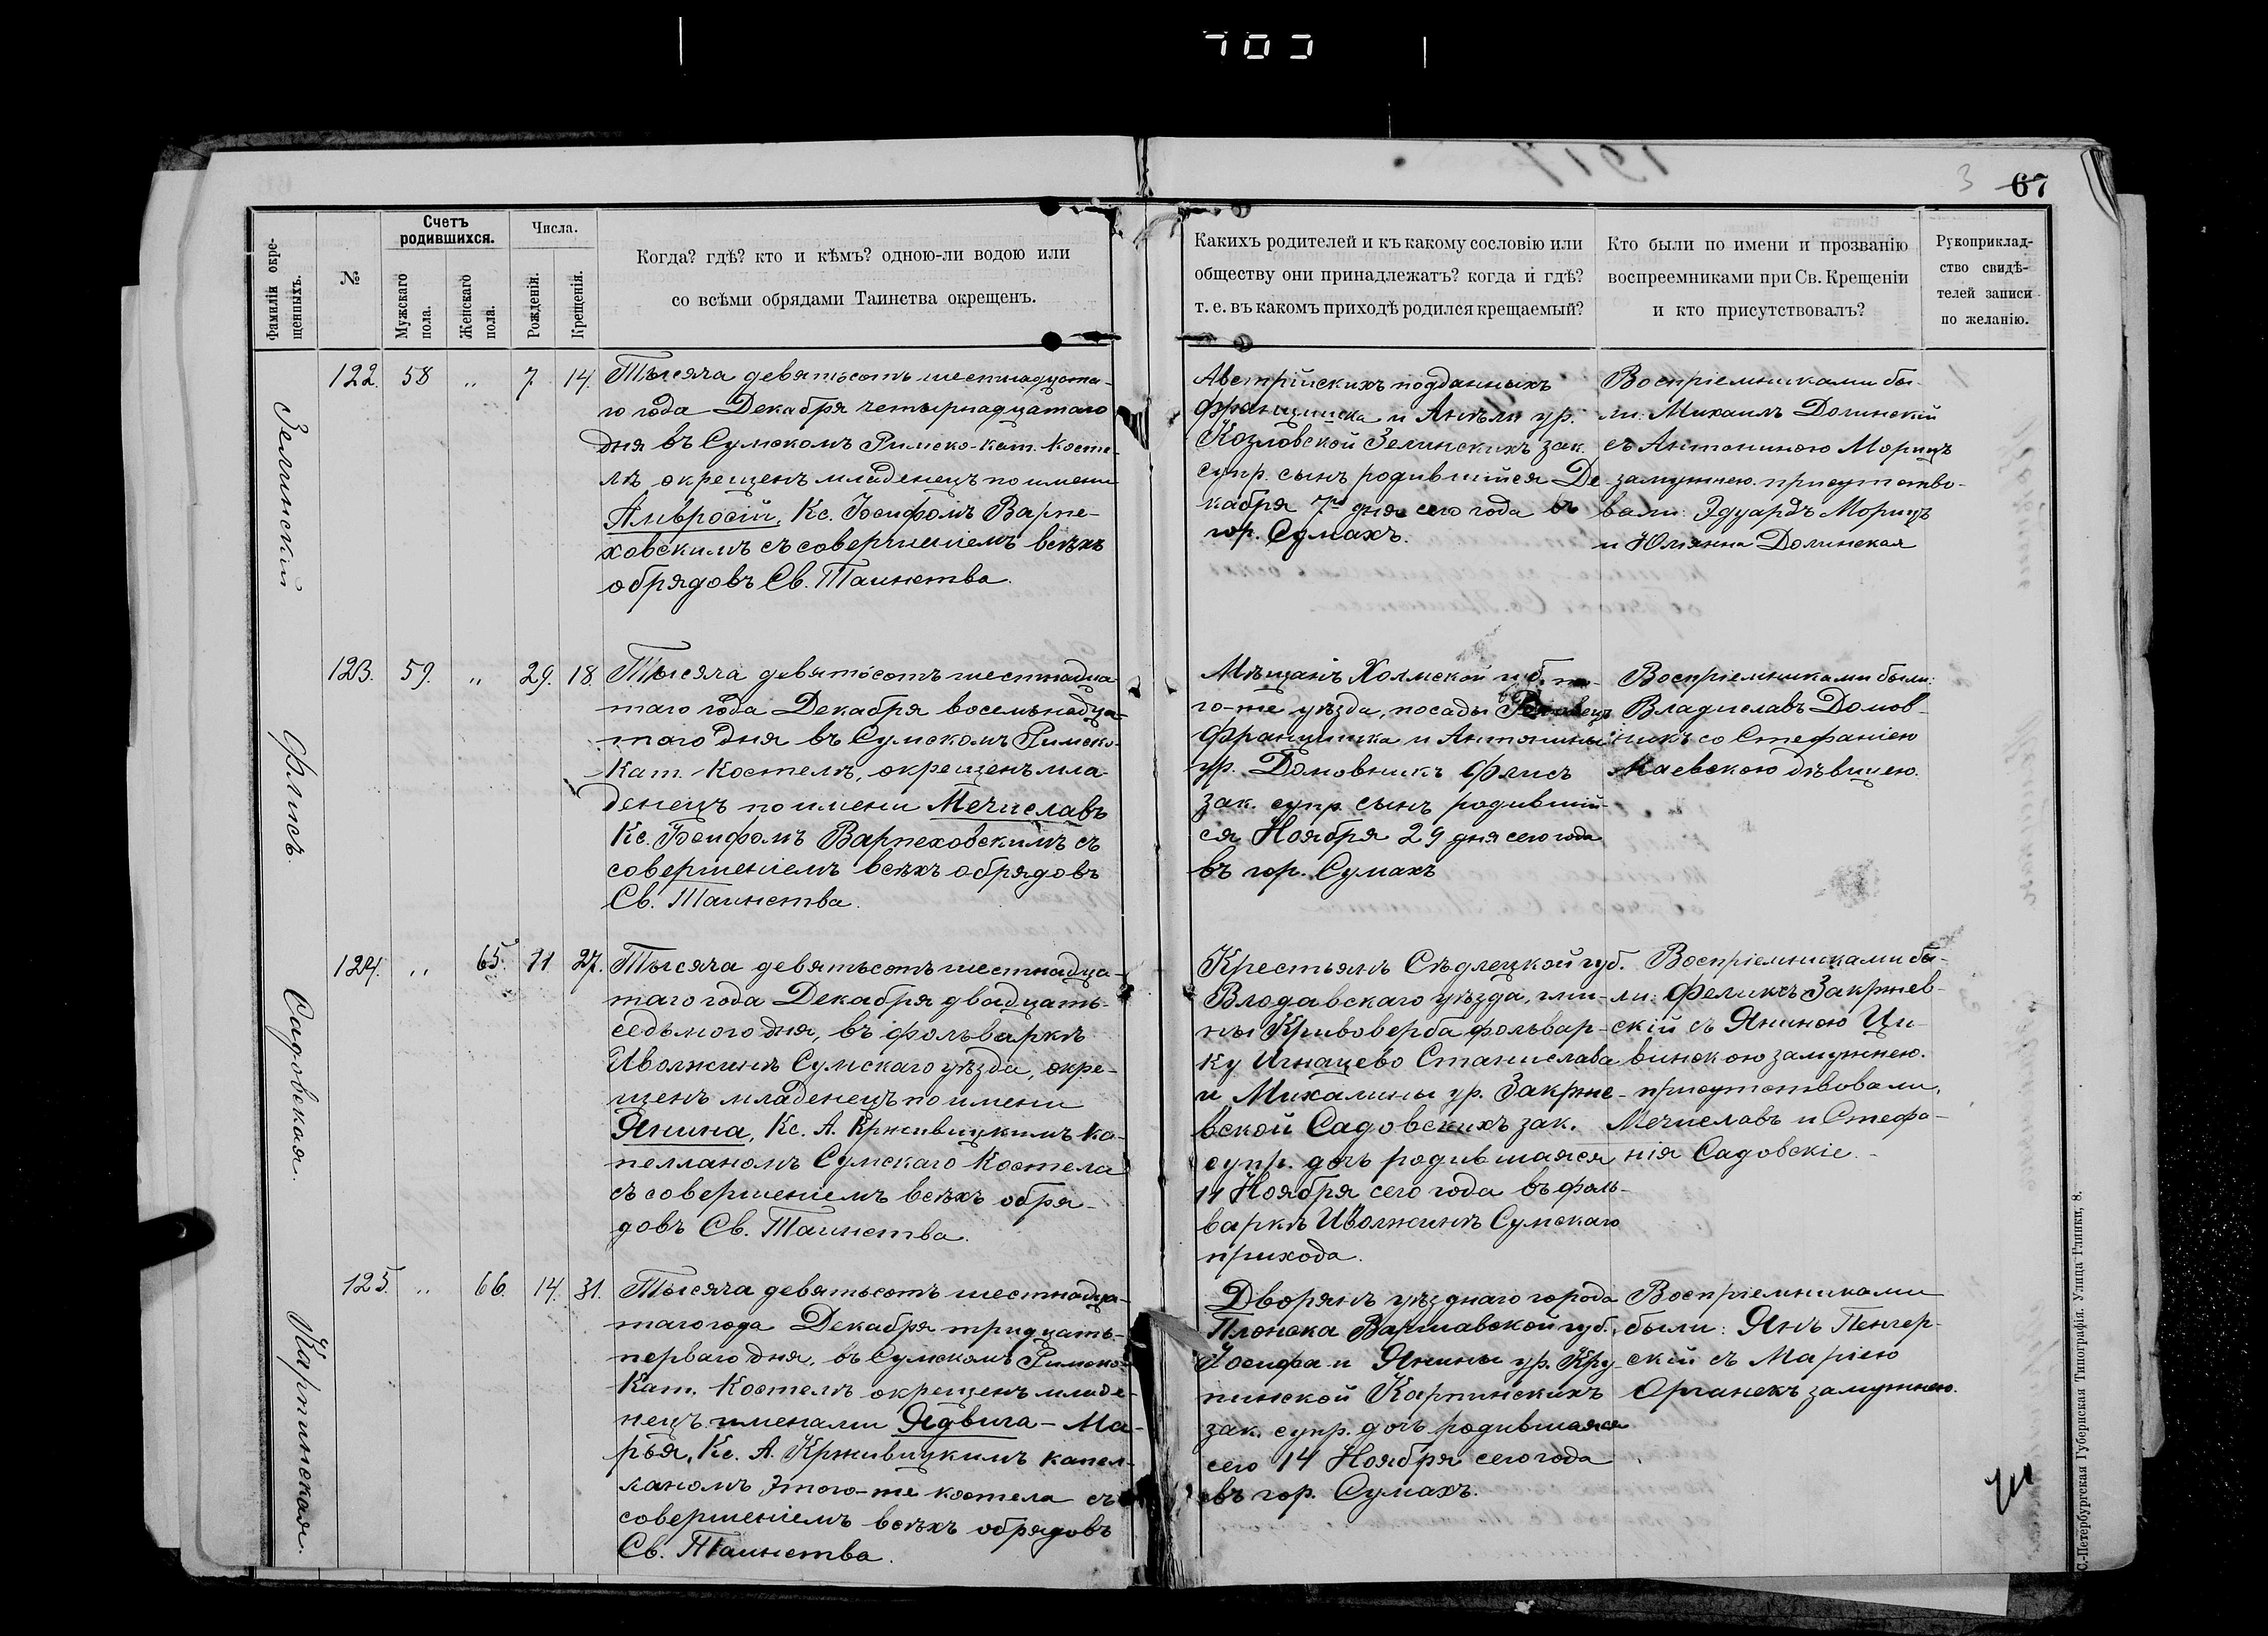 67
3
Фамиліи окре-
щенныхъ.
№
Счетъ
родившихся.
Мужскаго
пола.
Женскаго
пола.
Числа.
Рожденія.
Крещенія.
Когда? гдѣ? кто и кѣмъ? одною-ли водою или
со всѣми обрядами Таинства окрещенъ.
Какихъ родителей и къ какому сословію или
обществу они принадлежатъ? когда и гдѣ?
т. е. въ какомъ приходѣ родился крещаемый?
Кто были по имени и прозванію
воспреемниками при Св. Крещеніи
и кто присутствовалъ?
Рукоприклад-
ство свидѣ-
телей записи
по желанію.
Зелинскій
122. 58 „ 7 14.
Тысяча девятьсотъ шестнадцата-
го года Декабря четырнадцатаго
дня въ Сумскомъ Римско-кат. Косте-
лѣ окрещенъ младенецъ по имени
Амвросій, Кс. Іосифомъ Варпе-
ховскимъ съ совершеніемъ всѣхъ
обрядовъ Св. Таинства.
Австрійскихъ подданныхъ
Францишка и Анѣли ур.
Козловской Зелинскихъ зак.
супр. сынъ родившійся Де-
кабря 7го дня сего года въ
гор. Сумахъ.
Воспріемниками бы-
ли: Михаилъ Долинскій
съ Антониною Морицъ
замужнею. присутство-
вали: Эдуардъ Морицъ
и Юлянна Долинская
Флисъ.
123. 59. „ 29. 18.
Тысяча девятьсотъ шестнадца-
таго года Декабря восемьнадца-
таго дня въ Сумскомъ Римско-
Кат. Костелѣ, окрещенъ мла-
денецъ по имени Мечиславъ
Кс. Іосифомъ Варпеховскимъ съ
совершеніемъ всѣхъ обрядовъ
Св. Таинства.
Мѣщанъ Холмской губ. то-
го-же уѣзда, посады
Францишка и Антонины
ур. Домовникъ Флисъ
зак. супр. сынъ родившій-
ся Ноября 29 дня сего года
въ гор. Сумахъ
Воспріемниками были:
Владиславъ Домов-
никъ со Стефаніею
Маевскою дѣвицею.
Садовская.
124. „ 65. 11 27.
Тысяча девятьсотъ шестнадца-
таго года Декабря двадцать-
седьмого дня, въ фольваркѣ
Иволжинѣ Сумскаго уѣзда, окре-
щенъ младенецъ по имени
Янина, Кс. А. Крживицкимъ ка-
пелланомъ Сумскаго Костела
съ совершеніемъ всѣхъ обря-
довъ Св. Таинства.
Крестьянъ Сѣдлецкой губ.
Влодавскаго уѣзда, гми-
ны Кривоверба фольвар-
ку Игнацево Станислава
и Михалины ур. Закрже-
вской Садовскихъ зак.
супр. дочь родившаяся
11 Ноября сего года въ фоль-
варкѣ Иволжинѣ Сумскаго
прихода.
Воспріемниками бы-
ли: Феликсъ Закржев-
скій съ Яниною Ци-
винскою замужнею.
присутствовали:
Мечиславъ и Стефа-
нія Садовскіе.
Карпинская.
125. „ 66. 14. 31.
Тысяча девятьсотъ шестнадца-
таго года Декабря тридцать-
перваго дня, въ Сумскомъ Римско-
Кат. Костелѣ окрещенъ младе-
нецъ именами Ядвига-Ма-
рья, Кс. А. Крживицкимъ капел-
ланомъ этого-же костела съ
совершеніемъ всѣхъ обрядовъ
Св. Таинства.
Дворянъ уѣзднаго города
Плонска Варшавской губ.
Іосифа и Янины ур. Кру-
пинской Карпинскихъ
зак. супр. дочь родившаяся
сего 14 Ноября сего года
въ гор. Сумахъ.
Воспріемниками
были: Янъ Пенгер-
скій съ Маріею
Органекъ замужнею.
С.-Петербургская Губернская Типографія. Улица Глинки, 8.